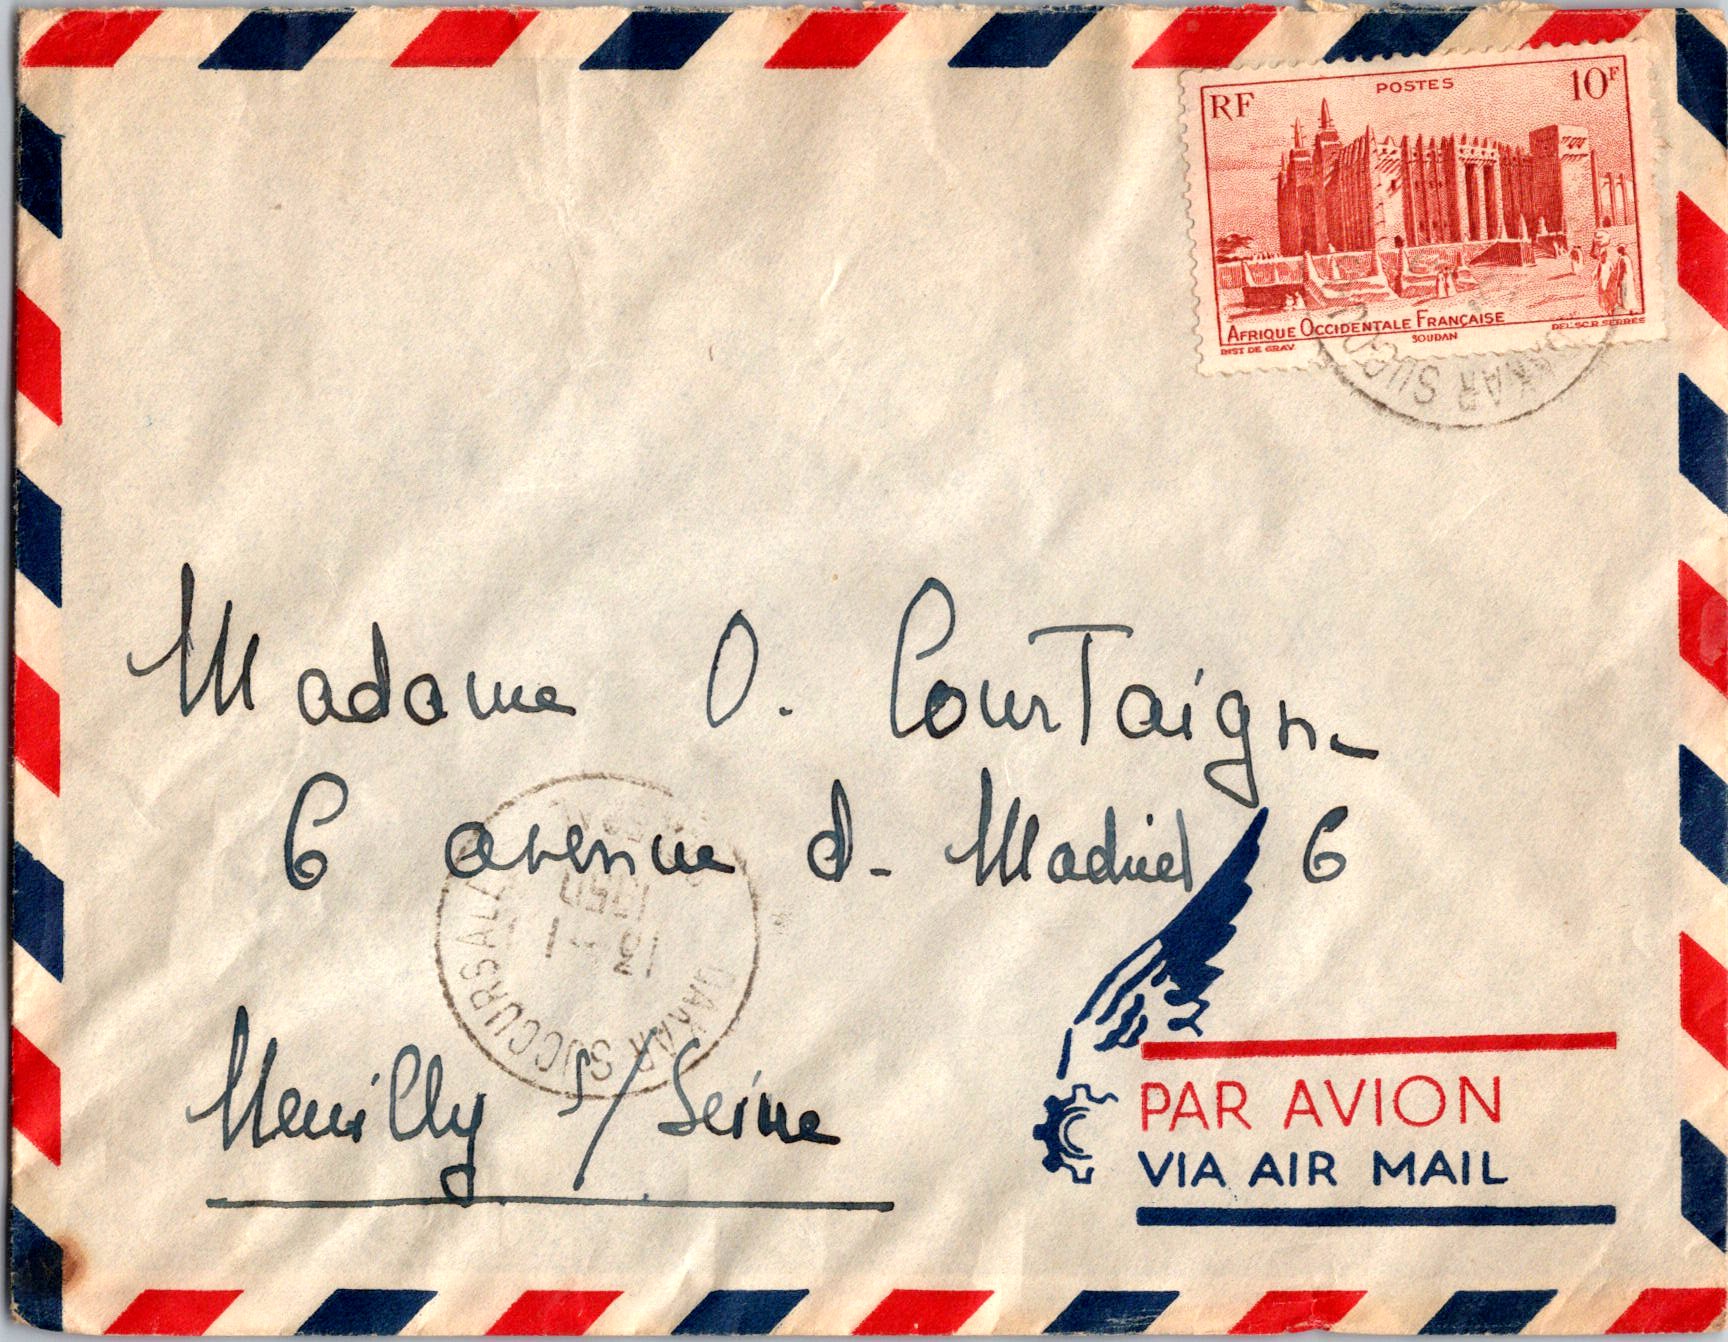 RF
POSTES
10F
AFRIQUE OCCIDENTALE FRANÇAISE
SOUDAN
INST DE GRAV
DEL. SC. R. SERRES
DAKAR SUCCURSALE
Madame O. Courtaigne
6 avenue de Madrid 6
1950
Neuilly s/Seine
PAR AVION
VIA AIR MAIL